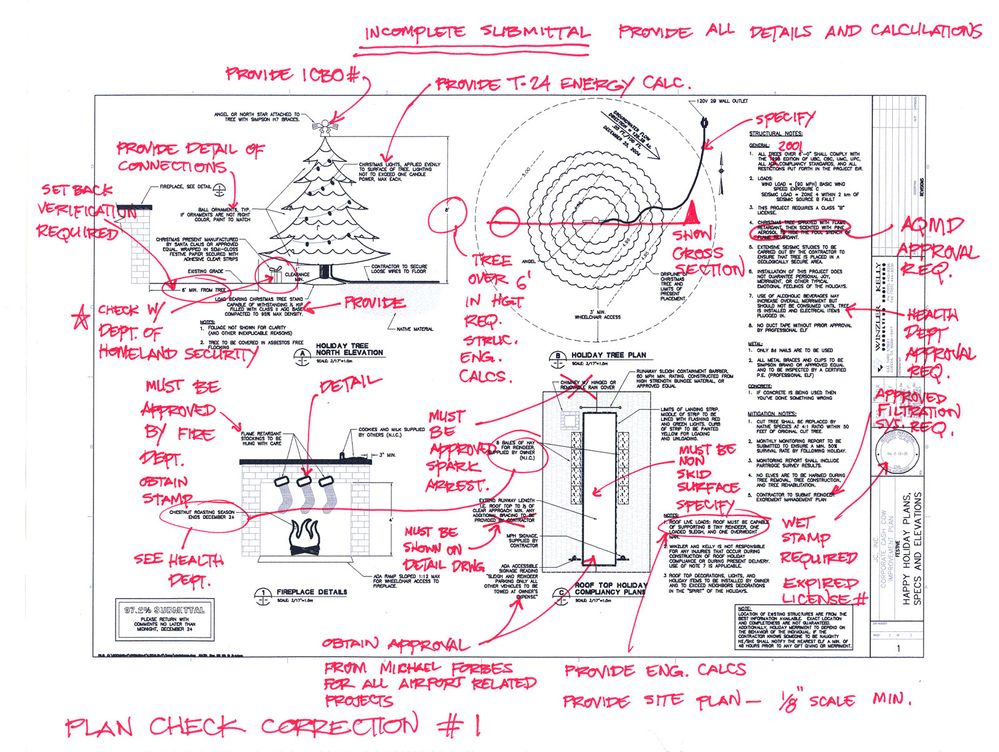 INCOMPLETE SUBMITTAL PROVIDE ALL DETAILS AND CALCULATIONS
PROVIDE ICBO#
PROVIDE T-24 ENERGY CALC.
ANGEL OR NORTH STAR ATTACHED TO
TREE WITH SIMPSON H7 BRACES.
PROVIDE DETAIL OF
CONNECTIONS
FIREPLACE, SEE DETAIL
SET BACK
VERIFICATION
REQUIRED
BALL ORNAMENTS, TYP.
IF ORNAMENTS ARE NOT RIGHT
COLOR, PAINT TO MATCH
CHRISTMAS PRESENT MANUFACTURED
BY SANTA CLAUS OR APPROVED
EQUAL. WRAPPED IN SEMI-GLOSS
FESTIVE PAPER SECURED WITH
ADHESIVE CLEAR STRIPS
EXISTING GRADE
6" MIN. FROM TREE
CLEARANCE
MIN.
CHRISTMAS LIGHTS, APPLIED EVENLY
TO SURFACE OF TREE. LIGHTING
NOT TO EXCEED ONE CANDLE
POWER, MAX EACH.
CONTRACTOR TO SECURE
LOOSE WIRES TO FLOOR
LOAD BEARING CHRISTMAS TREE STAND
CAPABLE OF WITHSTANDING
FILLED WITH CLASS II AGG BASE
COMPACTED TO 95% MAX DENSITY.
PROVIDE
NATIVE MATERIAL
CHECK W/
DEPT. OF
HOMELAND SECURITY
NOTES:
1. FOLIAGE NOT SHOWN FOR CLARITY
(AND OTHER INEXPLICABLE REASONS)
2. TREE TO BE COVERED IN ASBESTOS FREE
FLOCKING
A HOLIDAY TREE
NORTH ELEVATION
SCALE: 3/17"=1.6m
8'
TREE
OVER
6'
IN HGT
REQ.
STRUC.
ENG.
CALCS.
120V 29 WALL OUTLET
SPECIFY
GROUNDWATER FLOW
DECEMBER 25, 2004
SHOW
CROSS
SECTION
ANGEL
DRIPLINE
CHRISTMAS
TREE AND
LIMITS OF
PRESENT
PLACEMENT.
3' MIN.
WHEELCHAIR ACCESS
B HOLIDAY TREE PLAN
SCALE: 3/17"=1.6m
STRUCTURAL NOTES:
GENERAL: 2001
1. ALL TREES OVER 6'-0" SHALL COMPLY WITH
THE 1998 EDITION OF UBC, CBC, UMC, UPC,
ALL ADA COMPLIANCY STANDARDS, AND ALL
RESTRICTIONS PUT FORTH IN THE PROJECT EIR.
2. LOADS:
WIND LOAD = (90 MPH) BASIC WIND
SPEED EXPOSURE C
SEISMIC LOAD = ZONE 4 WITHIN 2 km OF
SEISMIC SOURCE B FAULT
3. THIS PROJECT REQUIRES A CLASS "B"
LICENSE.
4. CHRISTMAS TREE SPRAYED WITH FLAME
RETARDANT, THEN SCENTED WITH PINE
AEROSOL TO HIDE THE FOUL STENCH OF
FLAME RETARDANT.
5. EXTENSIVE SEISMIC STUDIES TO BE
CARRIED OUT BY THE CONTRACTOR TO
ENSURE THAT TREE IS PLACED IN A
GEOLOGICALLY SECURE AREA.
6. INSTALLATION OF THIS PROJECT DOES
NOT GUARANTEE PERSONAL JOY,
MERRIMENT, OR OTHER TYPICAL
EMOTIONAL FEELINGS OF THE HOLIDAYS.
7. USE OF ALCOHOLIC BEVERAGES MAY
INCREASE OVERALL MERRIMENT BUT
SHOULD NOT BE CONSUMED UNTIL TREE
IS INSTALLED AND ELECTRICAL ITEMS
PLUGGED IN.
8. NO DUCT TAPE WITHOUT PRIOR APPROVAL
BY PROFESSIONAL ELF
METAL:
1. ONLY 8d NAILS ARE TO BE USED
2. ALL METAL BRACES AND CLIPS TO BE
SIMPSON BRAND OR APPROVED EQUAL,
AND TO BE INSPECTED BY A CERTIFIED
P.E. (PROFESSIONAL ELF)
CONCRETE:
1. IF CONCRETE IS BEING USED THEN
YOU'VE DONE SOMETHING WRONG
MITIGATION NOTES:
1. CUT TREE SHALL BE REPLACED BY
NATIVE SPECIES AT 4:1 RATIO WITHIN 50
FEET OF ORIGINAL CUT TREE.
2. MONTHLY MONITORING REPORT TO BE
SUBMITTED TO ENSURE A MIN. 50%
SURVIVAL RATE BY FOLLOWING HOLIDAY.
3. MONITORING REPORT SHALL INCLUDE
PARTRIDGE SURVEY RESULTS.
4. NO ELVES ARE TO BE HARMED DURING
TREE REMOVAL, TREE CONSTRUCTION,
AND TREE REHABILITATION.
5. CONTRACTOR TO SUBMIT REINDEER
EXCREMENT MANAGEMENT PLAN
AQMD
APPROVAL
REQ.
HEALTH
DEPT
APPROVAL
REQ.
APPROVED
FILTRATION
SYS. REQ.
WET
STAMP
REQUIRED
EXPIRED
LICENSE#
REVISIONS
WINZLER & KELLY
JC, INC
CORPORATE CASH COW
IMPROVEMENT PLAN
FESTIVE
HAPPY HOLIDAY PLANS,
SPECS AND ELEVATIONS
1
MUST BE
APPROVED
BY FIRE
DEPT.
OBTAIN
STAMP
DETAIL
FLAME RETARDANT
STOCKINGS TO BE
HUNG WITH CARE
COOKIES AND MILK SUPPLIED
BY OTHERS (N.I.C.)
3" MIN.
CHESTNUT ROASTING SEASON
ENDS DECEMBER 24
SEE HEALTH
DEPT.
ADA RAMP SLOPED 1:12 MAX
FOR WHEELCHAIR ACCESS TO
FIREPLACE
1 FIREPLACE DETAILS
SCALE: 3/17"=1.6m
97.2% SUBMITTAL
PLEASE RETURN WITH
COMMENTS NO LATER THAN
MIDNIGHT, DECEMBER 24
MUST
BE
APPROVED
SPARK
ARREST.
CHIMNEY W/ HINGED OR
REMOVABLE RAIN COVER
RUNAWAY SLEIGH CONTAINMENT BARRIER,
60 MPH MIN. RATING, CONSTRUCTED FROM
HIGH STRENGTH BUNGEE MATERIAL, OR
APPROVED EQUAL
8 BALES OF HAY
FOR REINDEER,
SUPPLIED BY OWNER
(N.I.C.)
LIMITS OF LANDING STRIP.
MIDDLE OF STRIP TO BE
LINED WITH FLASHING RED
AND GREEN LIGHTS. CURB
OF STRIP TO BE PAINTED
YELLOW FOR LOADING
AND UNLOADING.
MUST BE
NON
SKID
SURFACE
SPECIFY
EXTEND RUNWAY LENGTH
I.E. ROOF TOP TO 15' OF
CLEAR APPROACH MIN. ANY
ADDITIONAL BRACING TO BE
PROVIDED BY CONTRACTOR
MUST BE
SHOWN ON
DETAIL DRWG
MPH SIGNAGE,
SUPPLIED BY
CONTRACTOR
ADA ACCESSIBLE
SIGNAGE READING
"SLEIGH AND REINDEER
PARKING ONLY ALL
OTHER VEHICLES TO BE
TOWED AT OWNER'S
EXPENSE"
NOTES:
1. ROOF LIVE LOADS: ROOF MUST BE CAPABLE
OF SUPPORTING 8 TINY REINDEER, ONE
LOADED SLEIGH, AND ONE OVERWEIGHT
MAN.
2. WINZLER AND KELLY IS NOT RESPONSIBLE
FOR ANY INJURIES THAT OCCUR DURING
CONSTRUCTION OF ROOF HOLIDAY
COMPLIANCY OR DURING PRESENT DELIVERY.
USE OF NOTE 7 IS APPLICABLE.
3. ROOF TOP DECORATIONS, LIGHTS, AND
HOLIDAY ITEMS TO BE INSTALLED BY OWNER
AND TO EXCEED NEIGHBORS DECORATIONS
IN THE "SPIRIT" OF THE HOLIDAYS.
C ROOF TOP HOLIDAY
COMPLIANCY PLANS
SCALE: 3/17"=1.6m
NOTE:
LOCATION OF EXISTING STRUCTURES ARE FROM THE
BEST INFORMATION AVAILABLE. EXACT LOCATION
AND COMPLETENESS ARE NOT GUARANTEED.
ADDITIONALLY, HOLIDAY MERRIMENT TO DEPEND ON
THE BEHAVIOR OF THE INDIVIDUAL. IF THE
CONTRACTOR KNOWS SOMEONE TO BE NAUGHTY
HE/SHE SHALL NOTIFY THE NEAREST ELF A MIN. OF
48 HOURS PRIOR TO ANY GIFT GIVING OR MERRIMENT.
OBTAIN APPROVAL
FROM MICHAEL FORBES
FOR ALL AIRPORT RELATED
PROJECTS
PROVIDE ENG. CALCS
PROVIDE SITE PLAN - 1/8" SCALE MIN.
PLAN CHECK CORRECTION #1